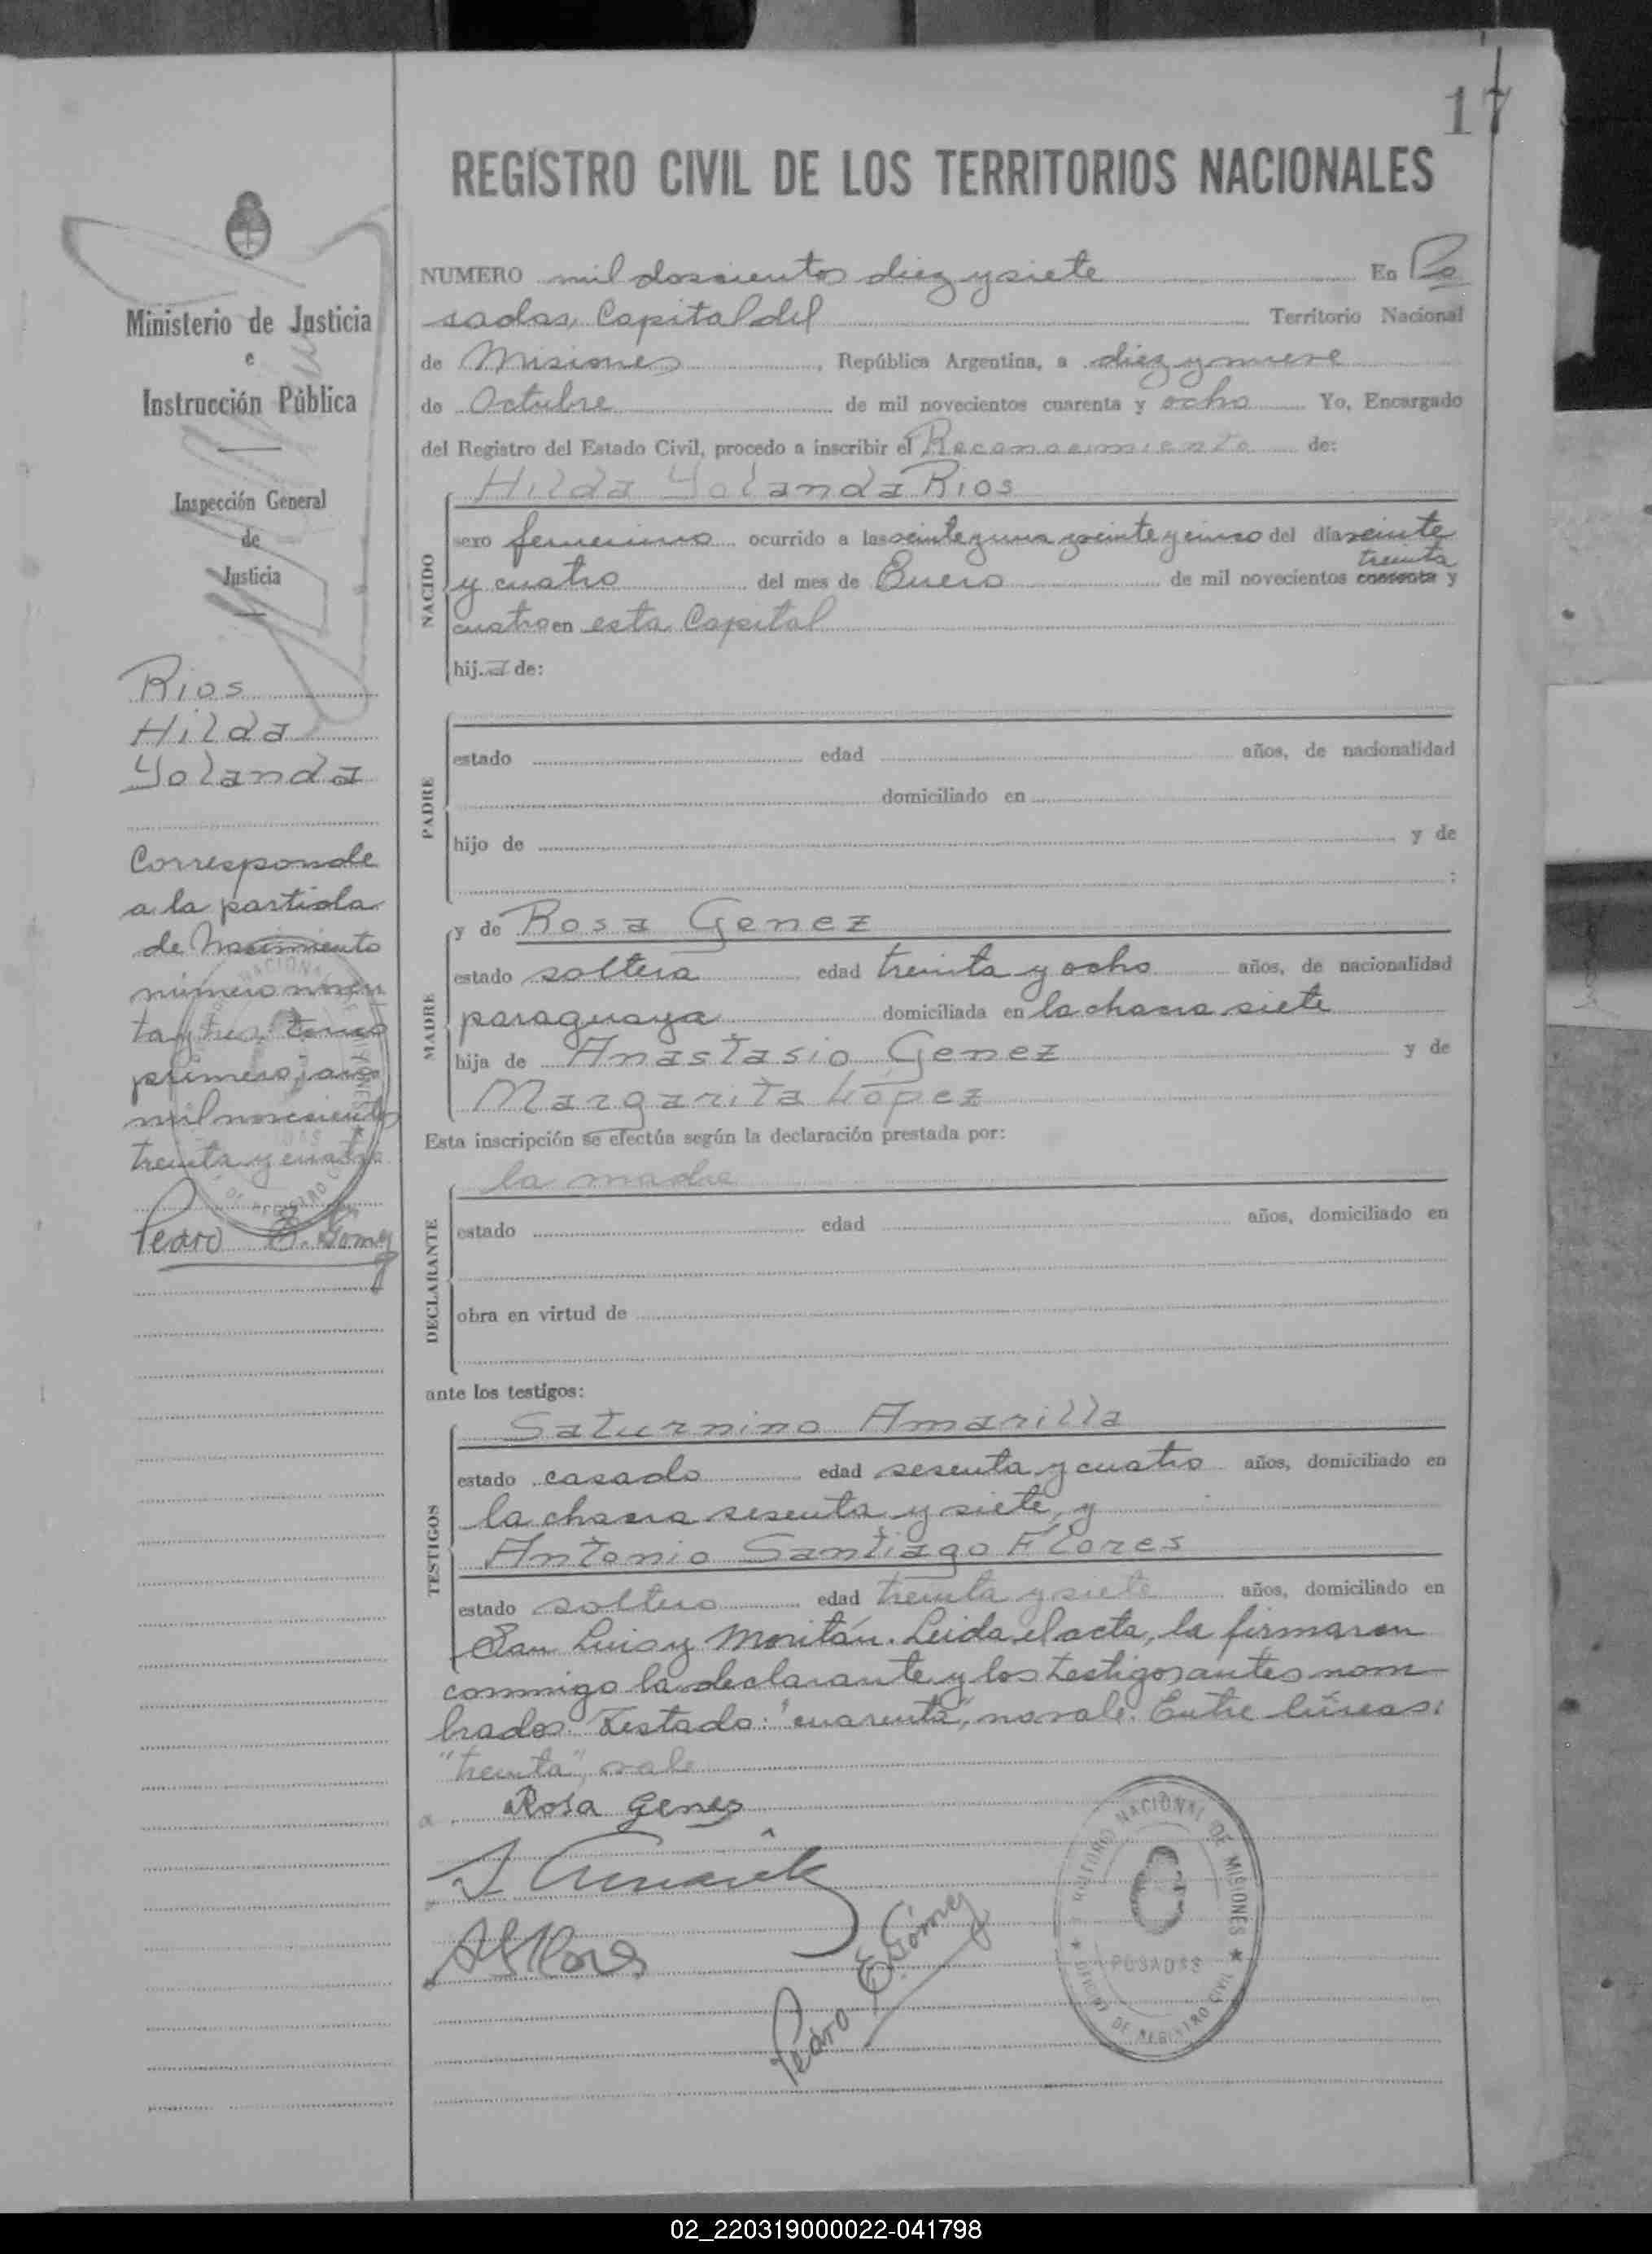 17
REGISTRO CIVIL DE LOS TERRITORIOS NACIONALES
Ministerio de Justicia
e
Instrucción Pública
Inspección General
de
Justicia
Rios
Hilda
Yolanda
Corresponde
a la partida
de Nacimiento
número noven
ta y tres tomo
primero, año
mil novecientos
treinta y cuatro
Pedro E. Gómez
NUMERO mil doscientos diez y siete En Po
sadas, Capital del Territorio Nacional
de Misiones, República Argentina, a diez y nueve
de Octubre de mil novecientos cuarenta y ocho Yo, Encargado
del Registro del Estado Civil, procedo a inscribir el Reconocimiento de:
Hilda Yolanda Rios
NACIDO
sexo femenino ocurrido a las veinte y una y veinte y cinco del día veinte
treinta
y cuatro del mes de Enero de mil novecientos cuarenta y
cuatro en esta Capital
hij a de:
PADRE
estado edad años, de nacionalidad
domiciliado en
hijo de y de
:
MADRE
y de Rosa Genez
estado soltera edad treinta y ocho años, de nacionalidad
paraguaya domiciliada en la chacra siete
hija de Anastasio Genez y de
Margarita López
Esta inscripción se efectúa según la declaración prestada por:
la madre
DECLARANTE
estado edad años, domiciliado en
obra en virtud de
ante los testigos:
TESTIGOS
Saturnino Amarilla
estado casado edad sesenta y cuatro años, domiciliado en
la chacra sesenta y siete, y
Antonio Santiago Flores
estado soltero edad treinta y siete años, domiciliado en
San Luis y Moritán. Leida el acta, la firmaron
conmigo la declarante y los testigos antes nom
brados. Testado: "cuarenta", no vale. Entre líneas:
"treinta", vale
Rosa Genez
S Amarilla
ASFlores
Pedro E Gómez
TERRITORIO NACIONAL DE MISIONES
POSADAS
OFICINA DE REGISTRO CIVIL
02_220319000022-041798